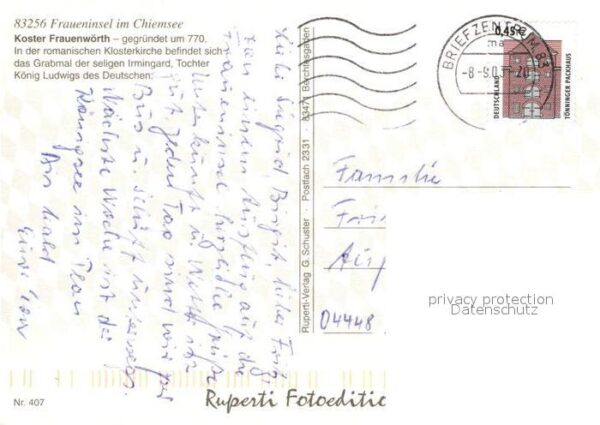 83256 Fraueninsel im Chiemsee
Koster Frauenwörth – gegründet um 770.
In der romanischen Klosterkirche befindet sich
das Grabmal der seligen Irmingard, Tochter
König Ludwigs des Deutschen.
Liebe Sigrid, Birgit, lieber
von einem Ausflug auf die
Fraueninsel herzliche Grüße
Unterkunft u. Wetter ist
gut. Jeden Tag sind wir per
Bus u. Schiff unterwegs.
Nächste Woche ist der
Königsee im Plan
Bis bald
Eure
Ruperti-Verlag G. Schuster · Postfach 2331 · 83471 Berchtesgaden
BRIEFZENTRUM 83
0,45€
DEUTSCHLAND
TÖNNINGER PACKHAUS
Familie
04448
privacy protection
Datenschutz
Nr. 407
Ruperti Fotoeditio